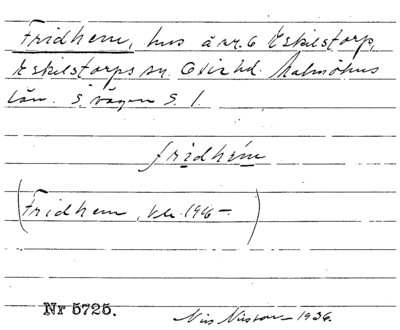 Fridhem, hus å nr. 6 Eskilstorp,
Eskilstorps sn. Oxie hd. Malmöhus
län. S. vägen S. 1.
fridhem
(Fridhem, 1916 –)
Nr 5725.
Nils Nilsson – 1936.